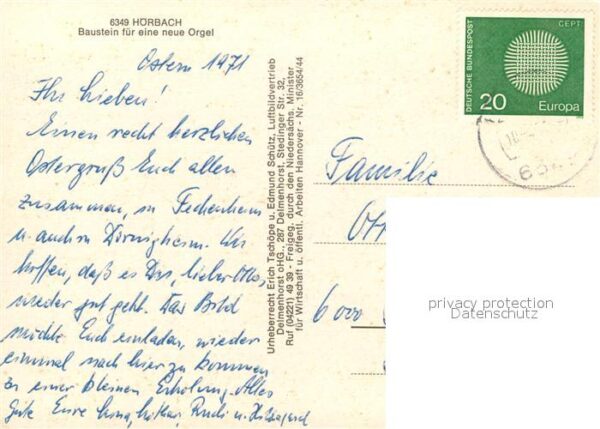 6349 HÖRBACH
Baustein für eine neue Orgel
Ostern 1971
Ihr Lieben!
Einen recht herzlichen
Ostergruß Euch allen
zusammen, in Fechenheim
u. auch in Dörnigheim. Wir
hoffen, daß es Dir, lieber Otto,
wieder gut geht. Das Bild
möchte Euch einladen, wieder
einmal nach hier zu kommen
zu einer kleinen Erholung. Alles
Gute Eure Lothar, Rudi u. Hildegard
Urheberrecht Erich Tschöpe u. Edmund Schütz, Luftbildvertrieb
Delmenhorst oHG., 287 Delmenhorst, Stedinger Str. 32,
Ruf (04221) 49 39 - Freigeg. durch den Niedersächs. Minister
für Wirtschaft u. öffentl. Arbeiten Hannover - Nr. 16/3654/44
DEUTSCHE BUNDESPOST
CEPT
20 Europa
634
Familie
Ott
6000
privacy protection
Datenschutz